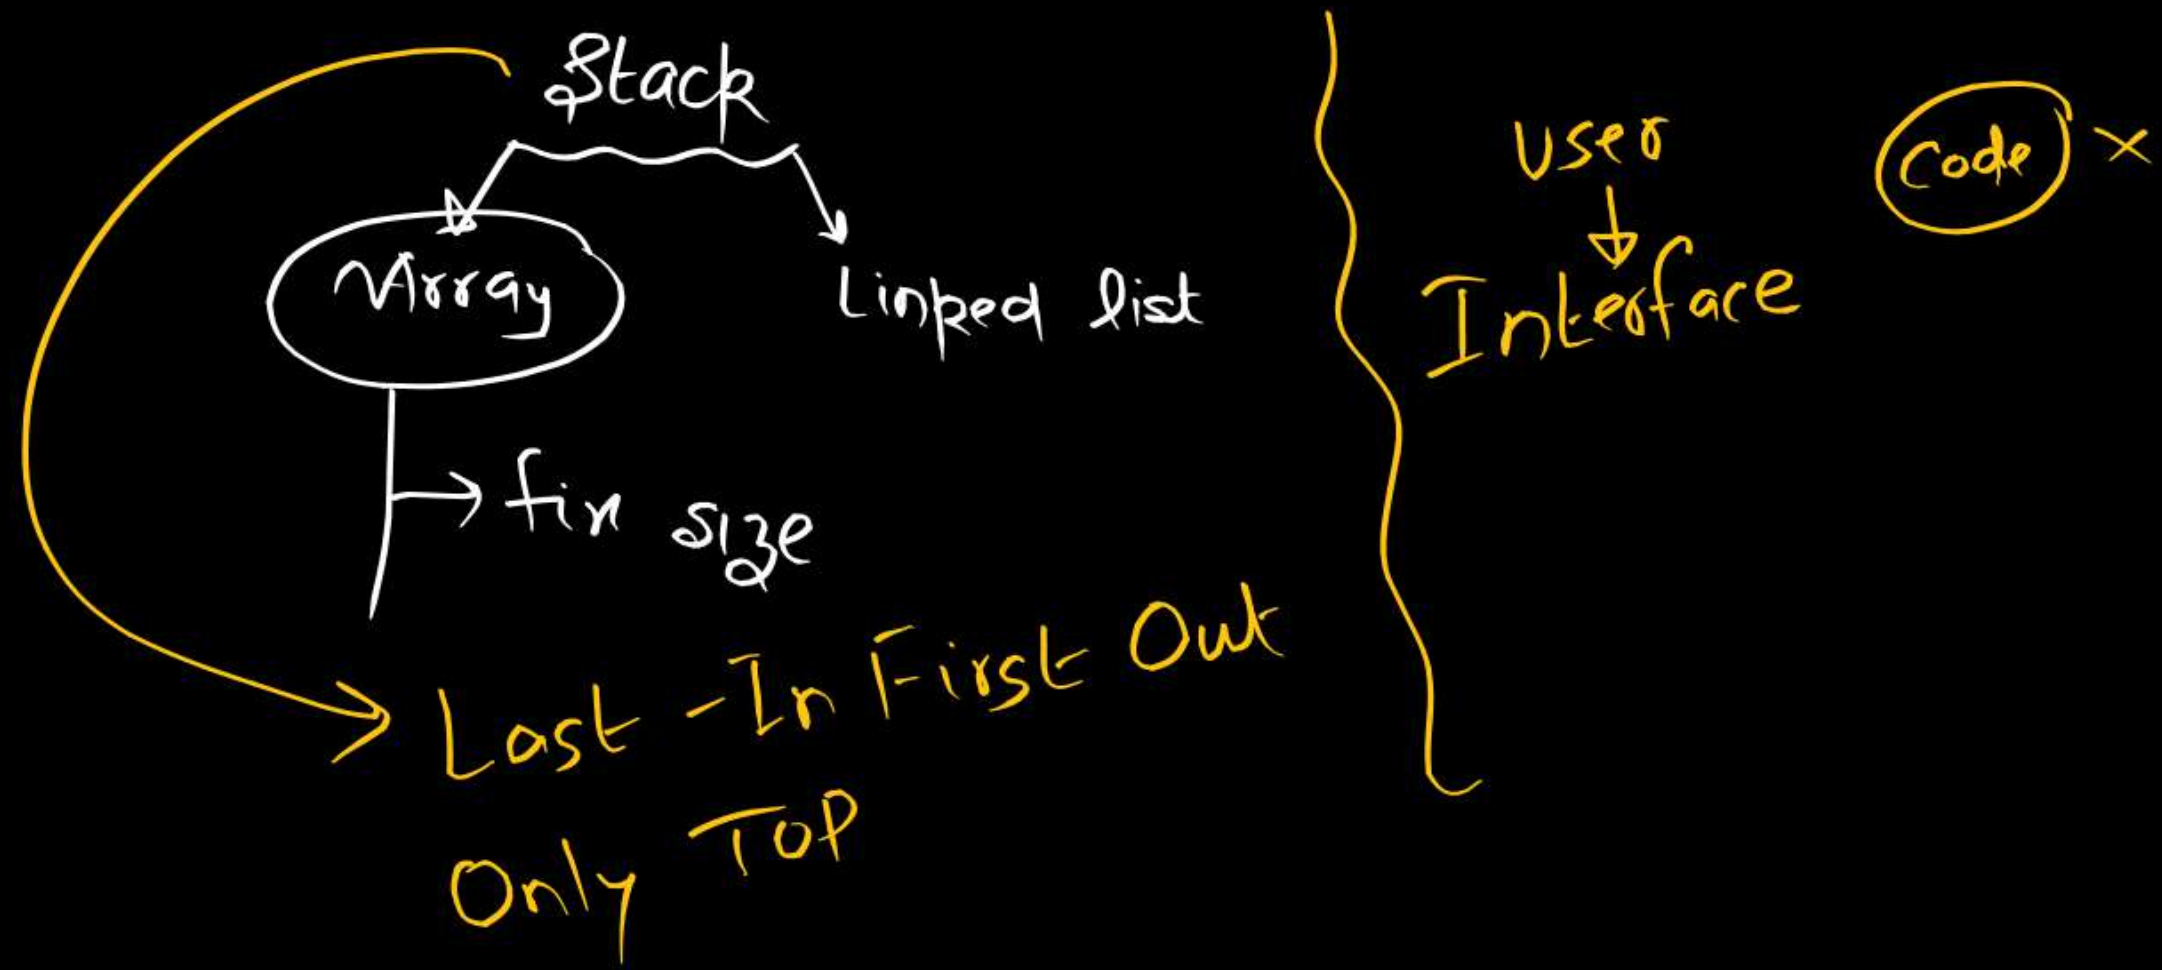 Stack
Array
Linked list
fix size
Last-In First Out
Only TOP
User
Interface
Code ×